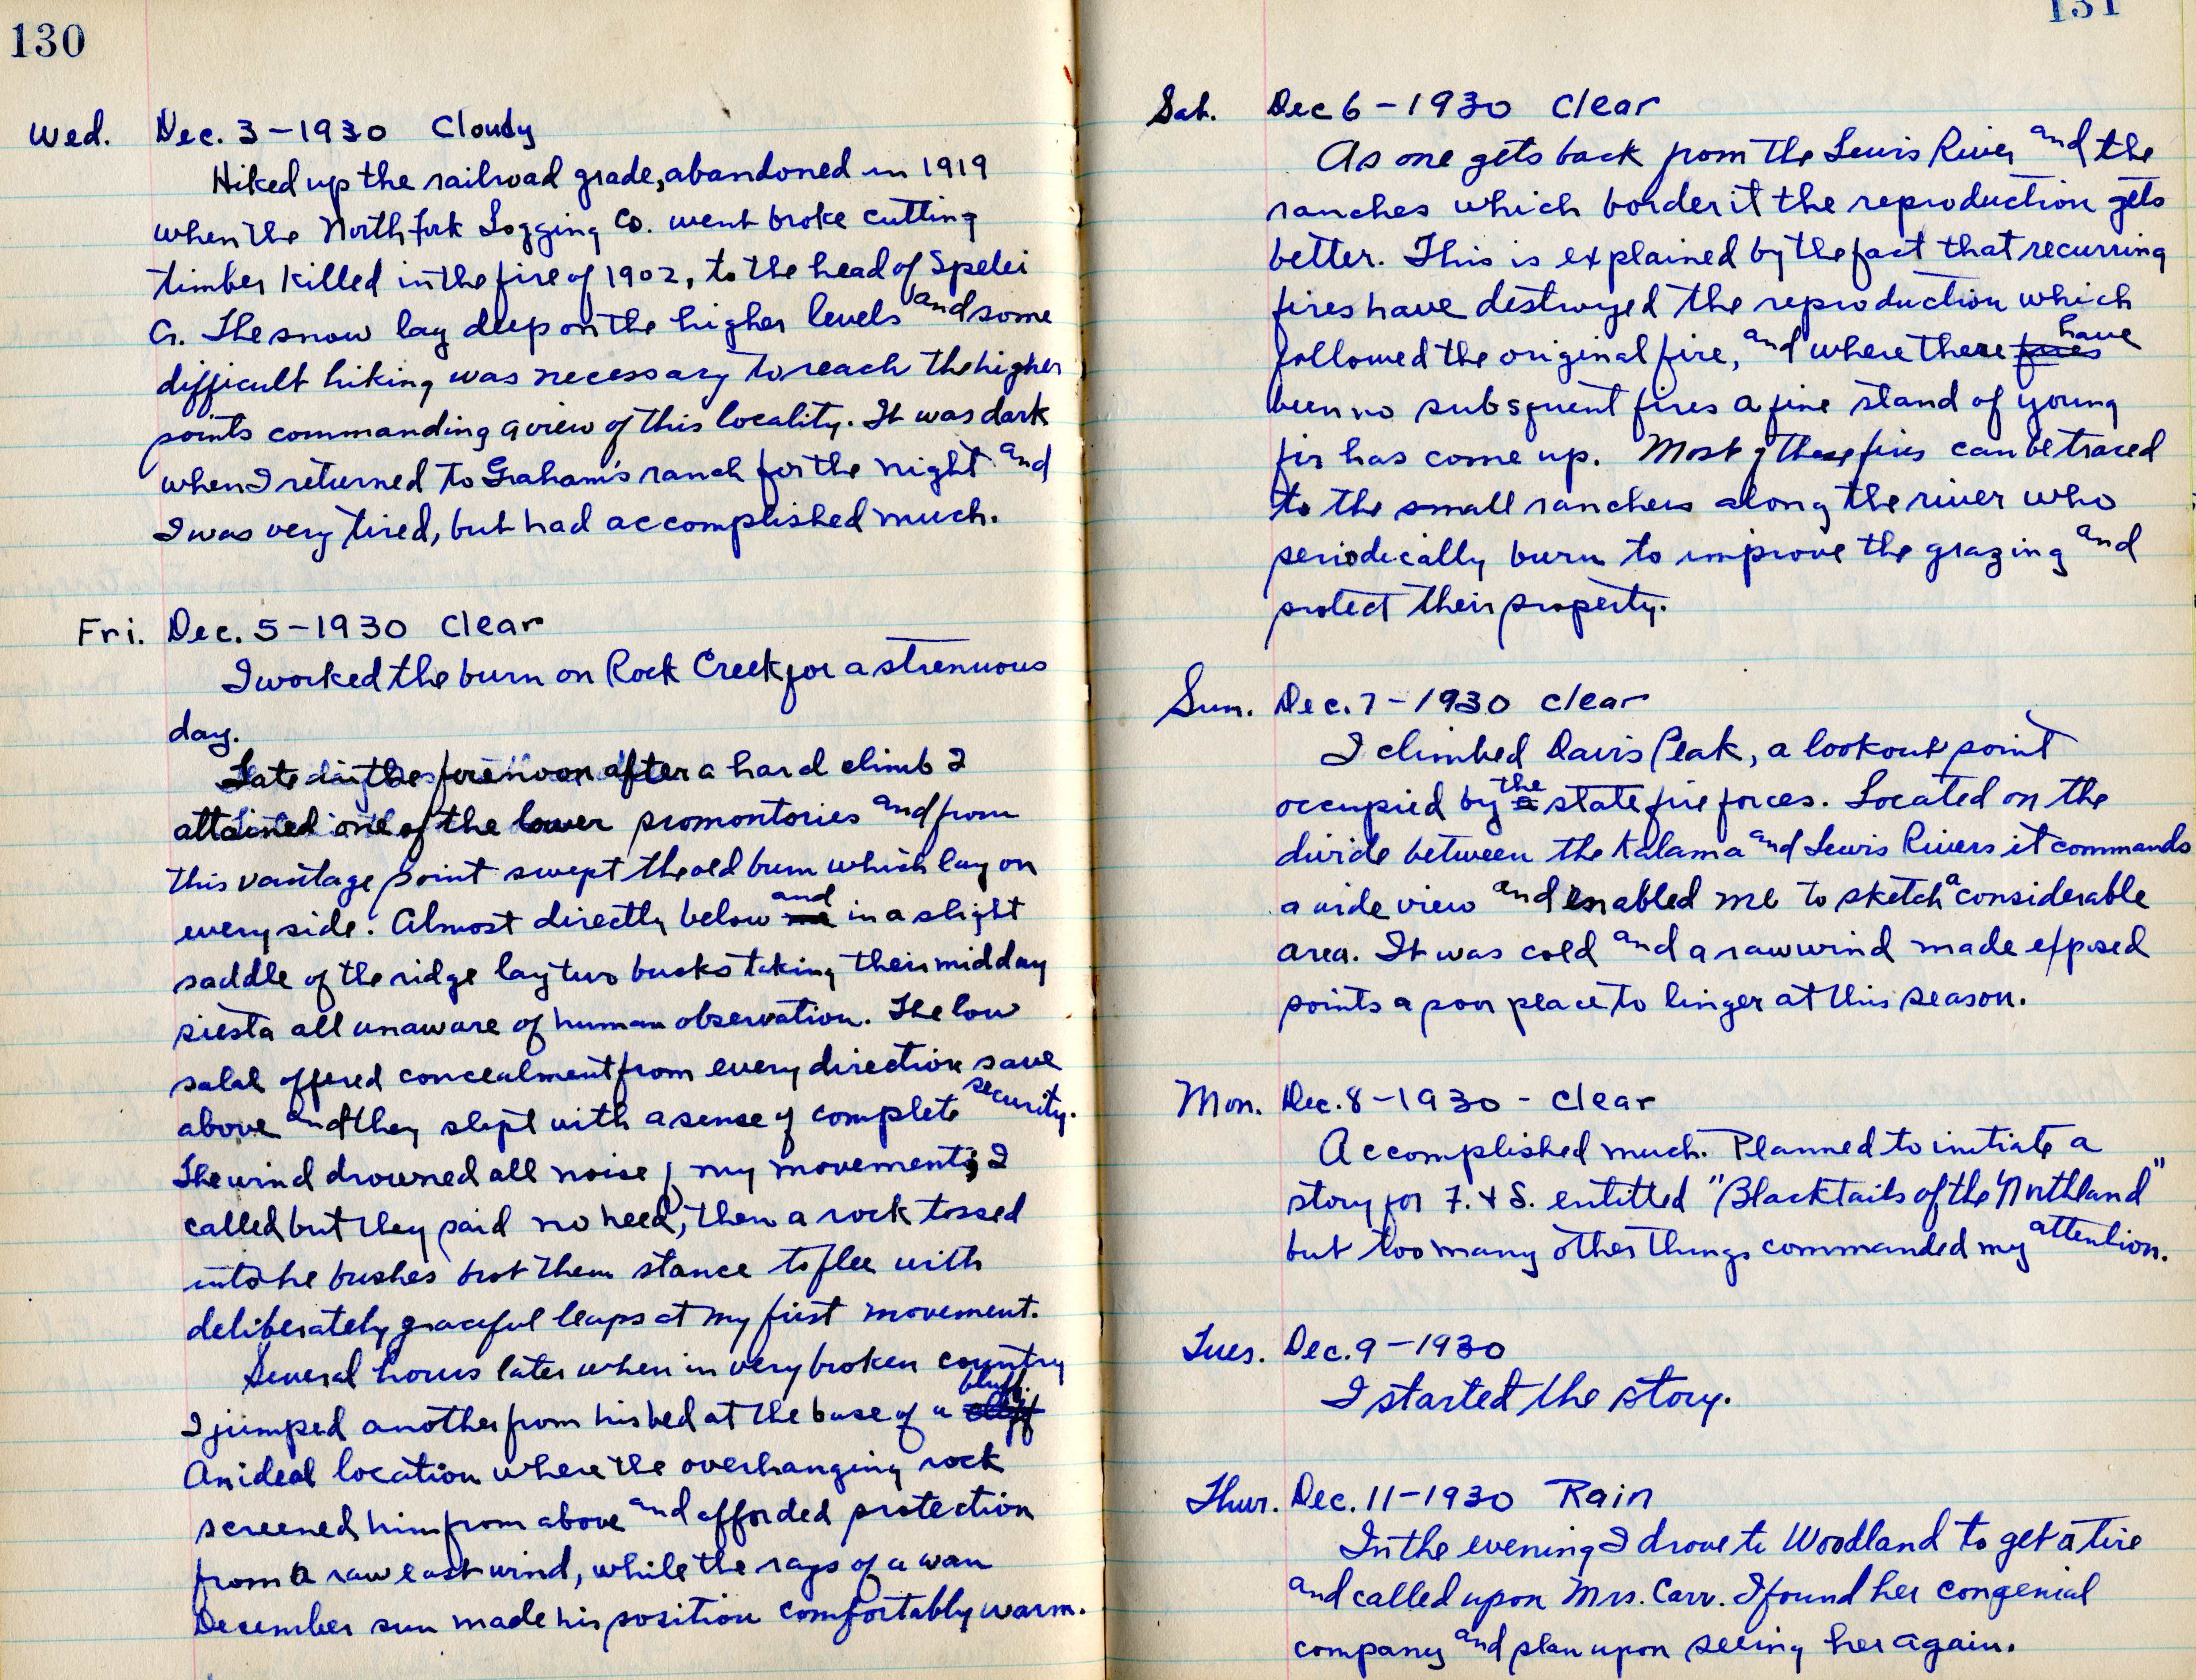 130
Wed. Dec. 3-1930 Cloudy
Hiked up the railroad grade, abandoned in 1919
when the North Fork Logging Co. went broke cutting
timber killed in the fire of 1902, to the head of Spelei
Cr. The snow lay deep on the higher levels and some
difficult hiking was necessary to reach the higher
points commanding a view of this locality. It was dark
when I returned to Graham's ranch for the night and
I was very tired, but had accomplished much.
Fri. Dec. 5-1930 Clear
I worked the burn on Rock Creek for a strenuous
day.
Late in the forenoon after a hard climb I
attained one of the lower promontories and from
this vantage point swept the old burn which lay on
every side. Almost directly below me and in a slight
saddle of the ridge lay two bucks taking their midday
siesta all unaware of human observation. The low
salal offered concealment from every direction save
above and they slept with a sense of complete security.
The wind drowned all noise of my movements; I
called but they paid no heed, then a rock tossed
into he bushes brot them stance to flee with
deliberately graceful leaps at my first movement.
Several hours later when in very broken country
I jumped another from his bed at the base of a cliff bluff.
An ideal location where the overhanging rock
screened him from above and afforded protection
from a raw east wind, while the rays of a wan
December sun made his position comfortably warm.
131
Sat. Dec 6-1930 Clear
As one gets back from the Lewis River and the
ranches which border it the reproduction gets
better. This is explained by the fact that recurring
fires have destroyed the reproduction which
followed the original fire, and where there fires have
been no subsquent fires a fine stand of young
fir has come up. Most of these fires can be traced
to the small ranchers along the river who
periodically burn to improve the grazing and
protect their property.
Sun. Dec. 7-1930 Clear
I climbed Davis Peak, a lookout point
occupied by a the state fire forces. Located on the
divide between the Kalama and Lewis Rivers it commands
a wide view and enabled me to sketch a considerable
area. It was cold and a raw wind made exposed
points a poor place to linger at this season.
Mon. Dec. 8-1930 - Clear
Accomplished much. Planned to initiate a
story for F. & S. entitled "Blacktails of the Northland"
but too many other things commanded my attention.
Tues. Dec. 9-1930
I started the story.
Thur. Dec. 11-1930 Rain
In the evening I drove to Woodland to get a tire
and called upon Mrs. Carr. I found her congenial
company and plan upon seeing her again.